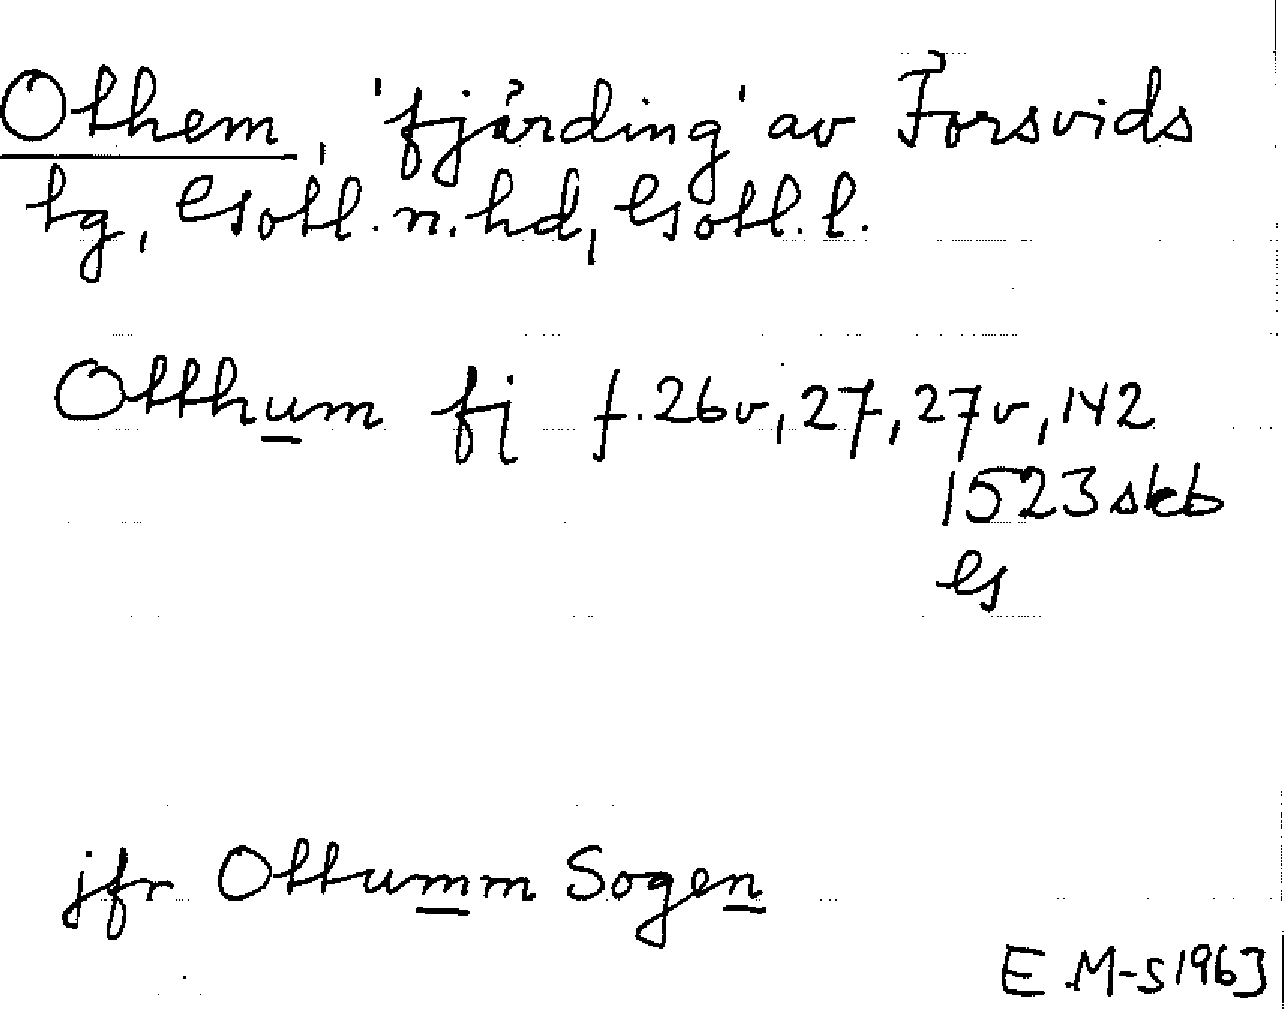 Othem, 'fjärding' av Forsvids
tg, Gotl. n. hd, Gotl. l.
Otthum fj f. 26v, 27, 27v, 142
1523 skb
G
jfr Ottumm Sogen
E.M-S 1963